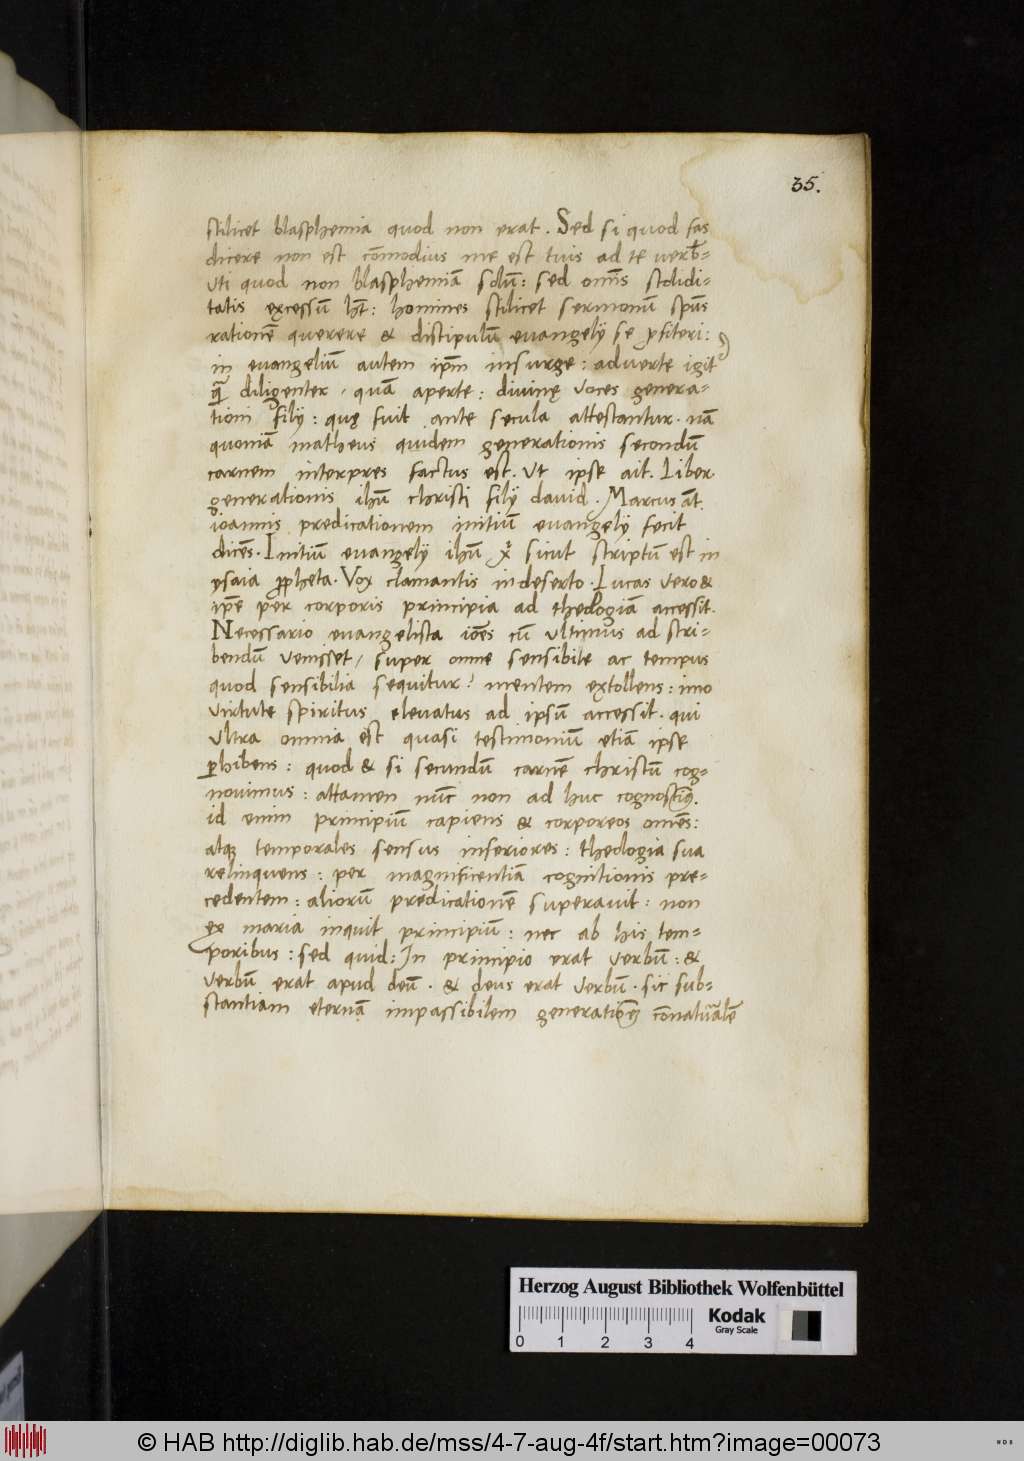 35.
scilicet blasphemia quod non erat. Sed si quod fas
dicere non est cōmodius me est tuis ad te verb̄-
uti quod non blasphemiā solū: sed om̄s stolidi-
tatis excessū hn̄t: homines scilicet sermonū spūs
rationē querere & discipulū euangelij se ꝓfiteri:
in euangeliū autem ip̄m insurge: aduerte igit᷑
qm̄ diligenter, quā aperte: diuinę uoces genera-
tioni filij: quę fuit ante secula attestantur. nā
quoniā matheus quidem generationis secondū
carnem interpres factus est. Ut ipse ait. Liber
generationis ihū christi filij dauid. Marcus āt.
ioannis predicationem initiū euangelij fecit
dicēs. Initiū euangelij ihū xp̄i sicut scriptū est in
ysaia ꝓpheta. Vox clamantis in deserto. Lucas uero &
ip̄e per corporis principia ad theologiā accessit.
Necessario euangelista ioēs cū ultimus ad scri-
bendū uenisset/ super omne sensibile ac tempus
quod sensibilia sequitur? mentem extollens: imo
uirtute spiritus eleuatus ad ipsū accessit. qui
ultra omnia est quasi testimoniū etiā ipse
ꝑhibens: quod & si secundū carnē christū cog-
nouimus: attamen nūc non ad huc cognoscimꝰ.
id enim principiū capiens & corporeos omēs:
atqꝫ temporales sensus inferiores: theologia sua
relinquens: per magnificentiā cognitionis pre-
cedentem: aliorū predicationē superauit: non
ex maria inquit principiū: nec ab his tem-
poribus: sed quid: In principio erat uerbū: &
uerbū erat apud deū. & deus erat uerbū. sic sub-
stantiam eternā impassibilem generationē cōnaturalē
Herzog August Bibliothek Wolfenbüttel
Kodak
Gray Scale
0 1 2 3 4
© HAB http://diglib.hab.de/mss/4-7-aug-4f/start.htm?image=00073